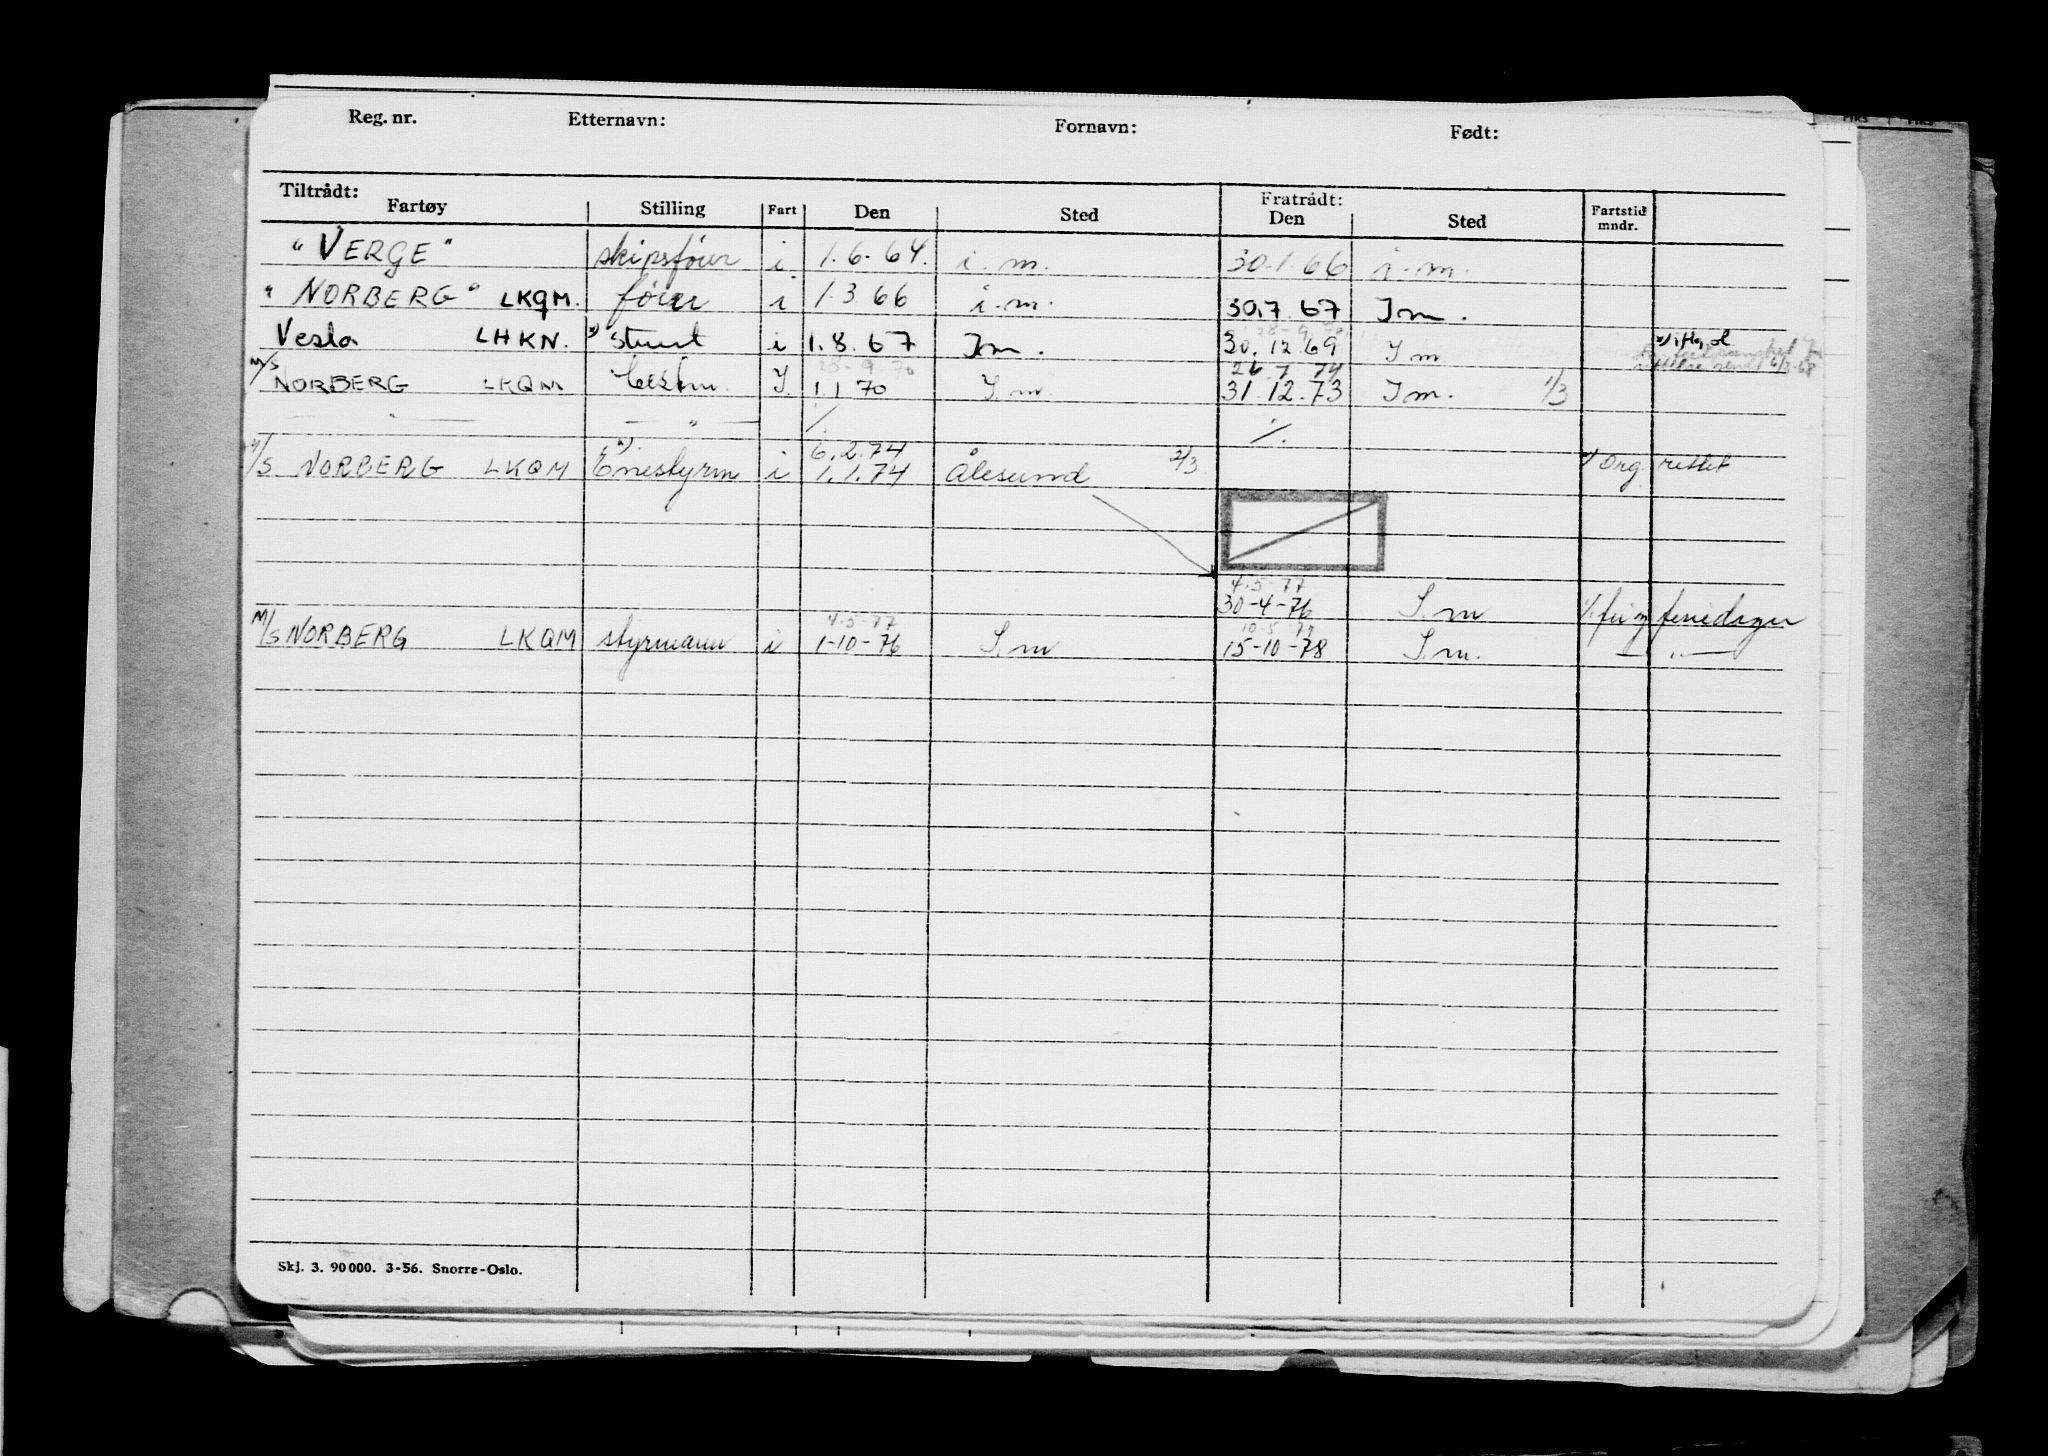 Reg. nr. Etternavn: Fornavn: Født:
Tiltrådt: Fratrådt:
Fartøy Stilling Fart Den Sted Den Sted Fartstid mndr.
"VERGE" skipsfører i 1.6.64. i.m. 30.1.66 i.m.
"NORBERG" LKQM. fører i 1.3.66 i.m. 30.7.67 Im.
28-9-70
Vesla LHKN. x) stuert i 1.8.67 Im. 30.12.69 Im x)
28-9-70 26.7.74
M/S NORBERG LKQM Bestm. I. 1.1.70 I.m 31.12.73 Im. 1/3
— " — — " — ./. ./.
6.2.74
M/S NORBERG LKQM x) Enestyrm i 1.1.74 Ålesund 2/3 x) Org. rettet
4-5-77
30-4-76 I.m ./. fri og feriedager
4-5-77 10-5-79
M/S NORBERG LKQM styrmann i 1-10-76 I.m 15-10-78 I.m. — " —
Skj. 3. 90 000. 3-56. Snorre-Oslo.